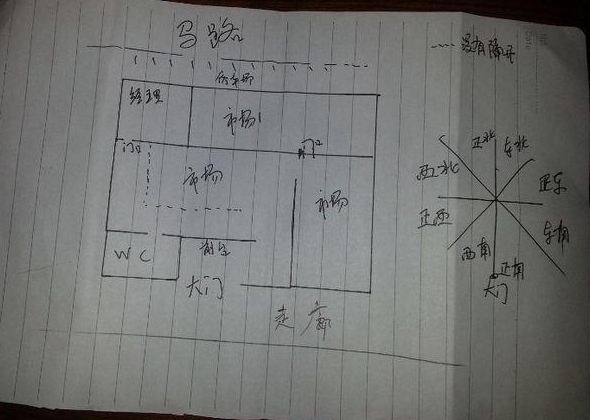 马路
没有隔开
停车场
经理
市场1
门1
门2
市场
市场
WC
前台
大门
走廊
正北
东北
西北
正东
正西
东南
西南
正南
大门